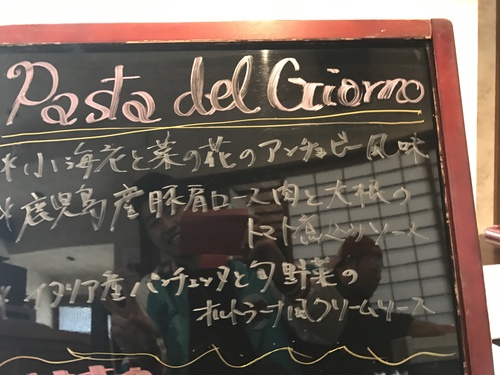 Pasta del Giorno
* 小海老と菜の花のアンチョビー風味
* 鹿児島産豚肩ロース肉と大根の
トマト煮込みソース
* イタリア産パンチェッタと旬野菜の
オルトラーナ風クリームソース